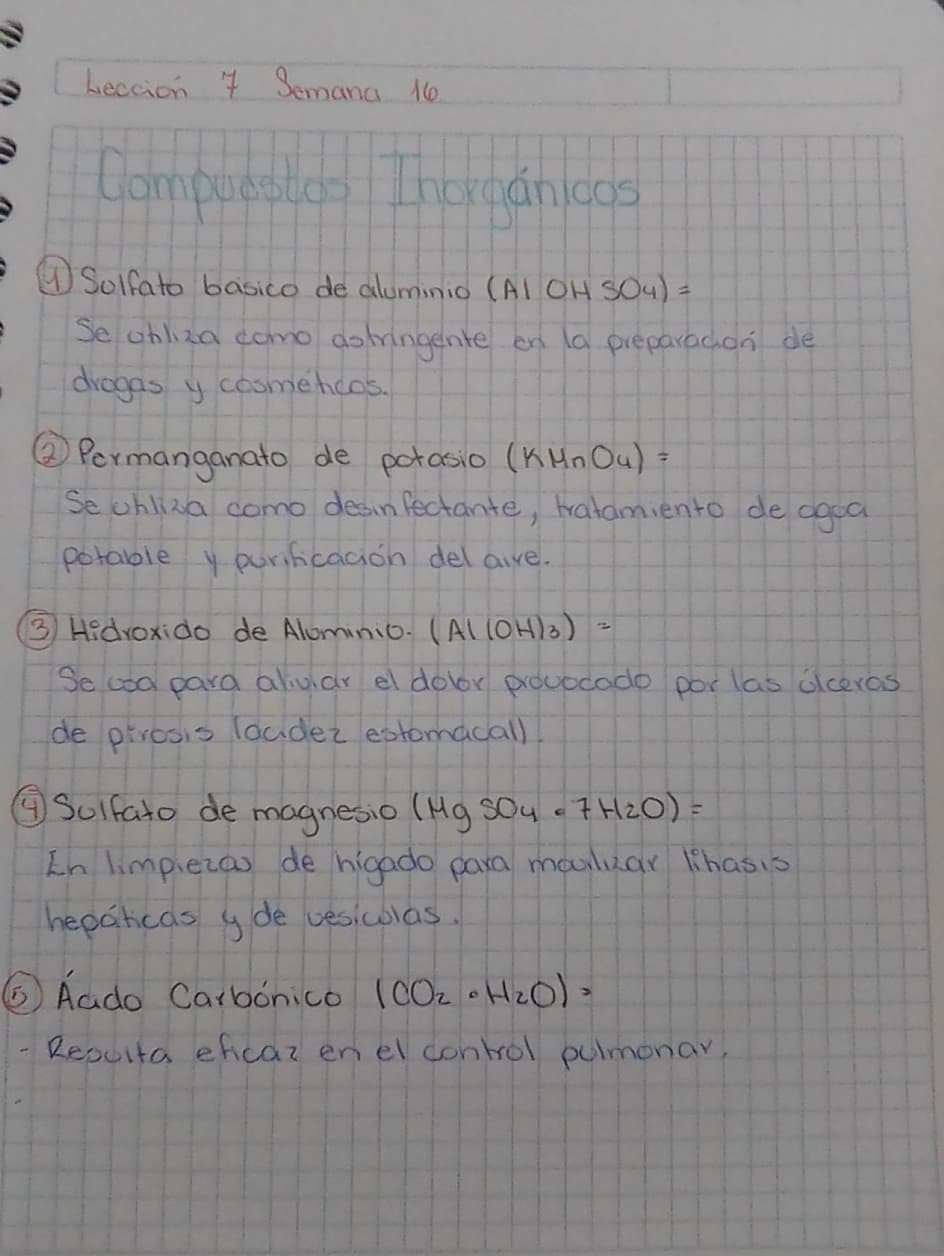 Lección 7 Semana 16
Compuestos Inorgánicos
① Sulfato básico de aluminio (Al OH SO4) =
Se utiliza como astringente en la preparación de
drogas y cosméticos.
② Permanganato de potasio (KMnO4) =
Se utiliza como desinfectante, tratamiento de agua
potable y purificación del aire.
③ Hidroxido de Aluminio. (Al(OH)3) =
Se usa para aliviar el dolor provocado por las úlceras
de pirosis (acidez estomacal)
④ Sulfato de magnesio (Mg SO4 • 7H2O) =
En limpiezas de hígado para movilizar litiasis
hepáticas y de vesículas.
⑤ Ácido Carbónico (CO2 • H2O) =
- Resulta eficaz en el control pulmonar.